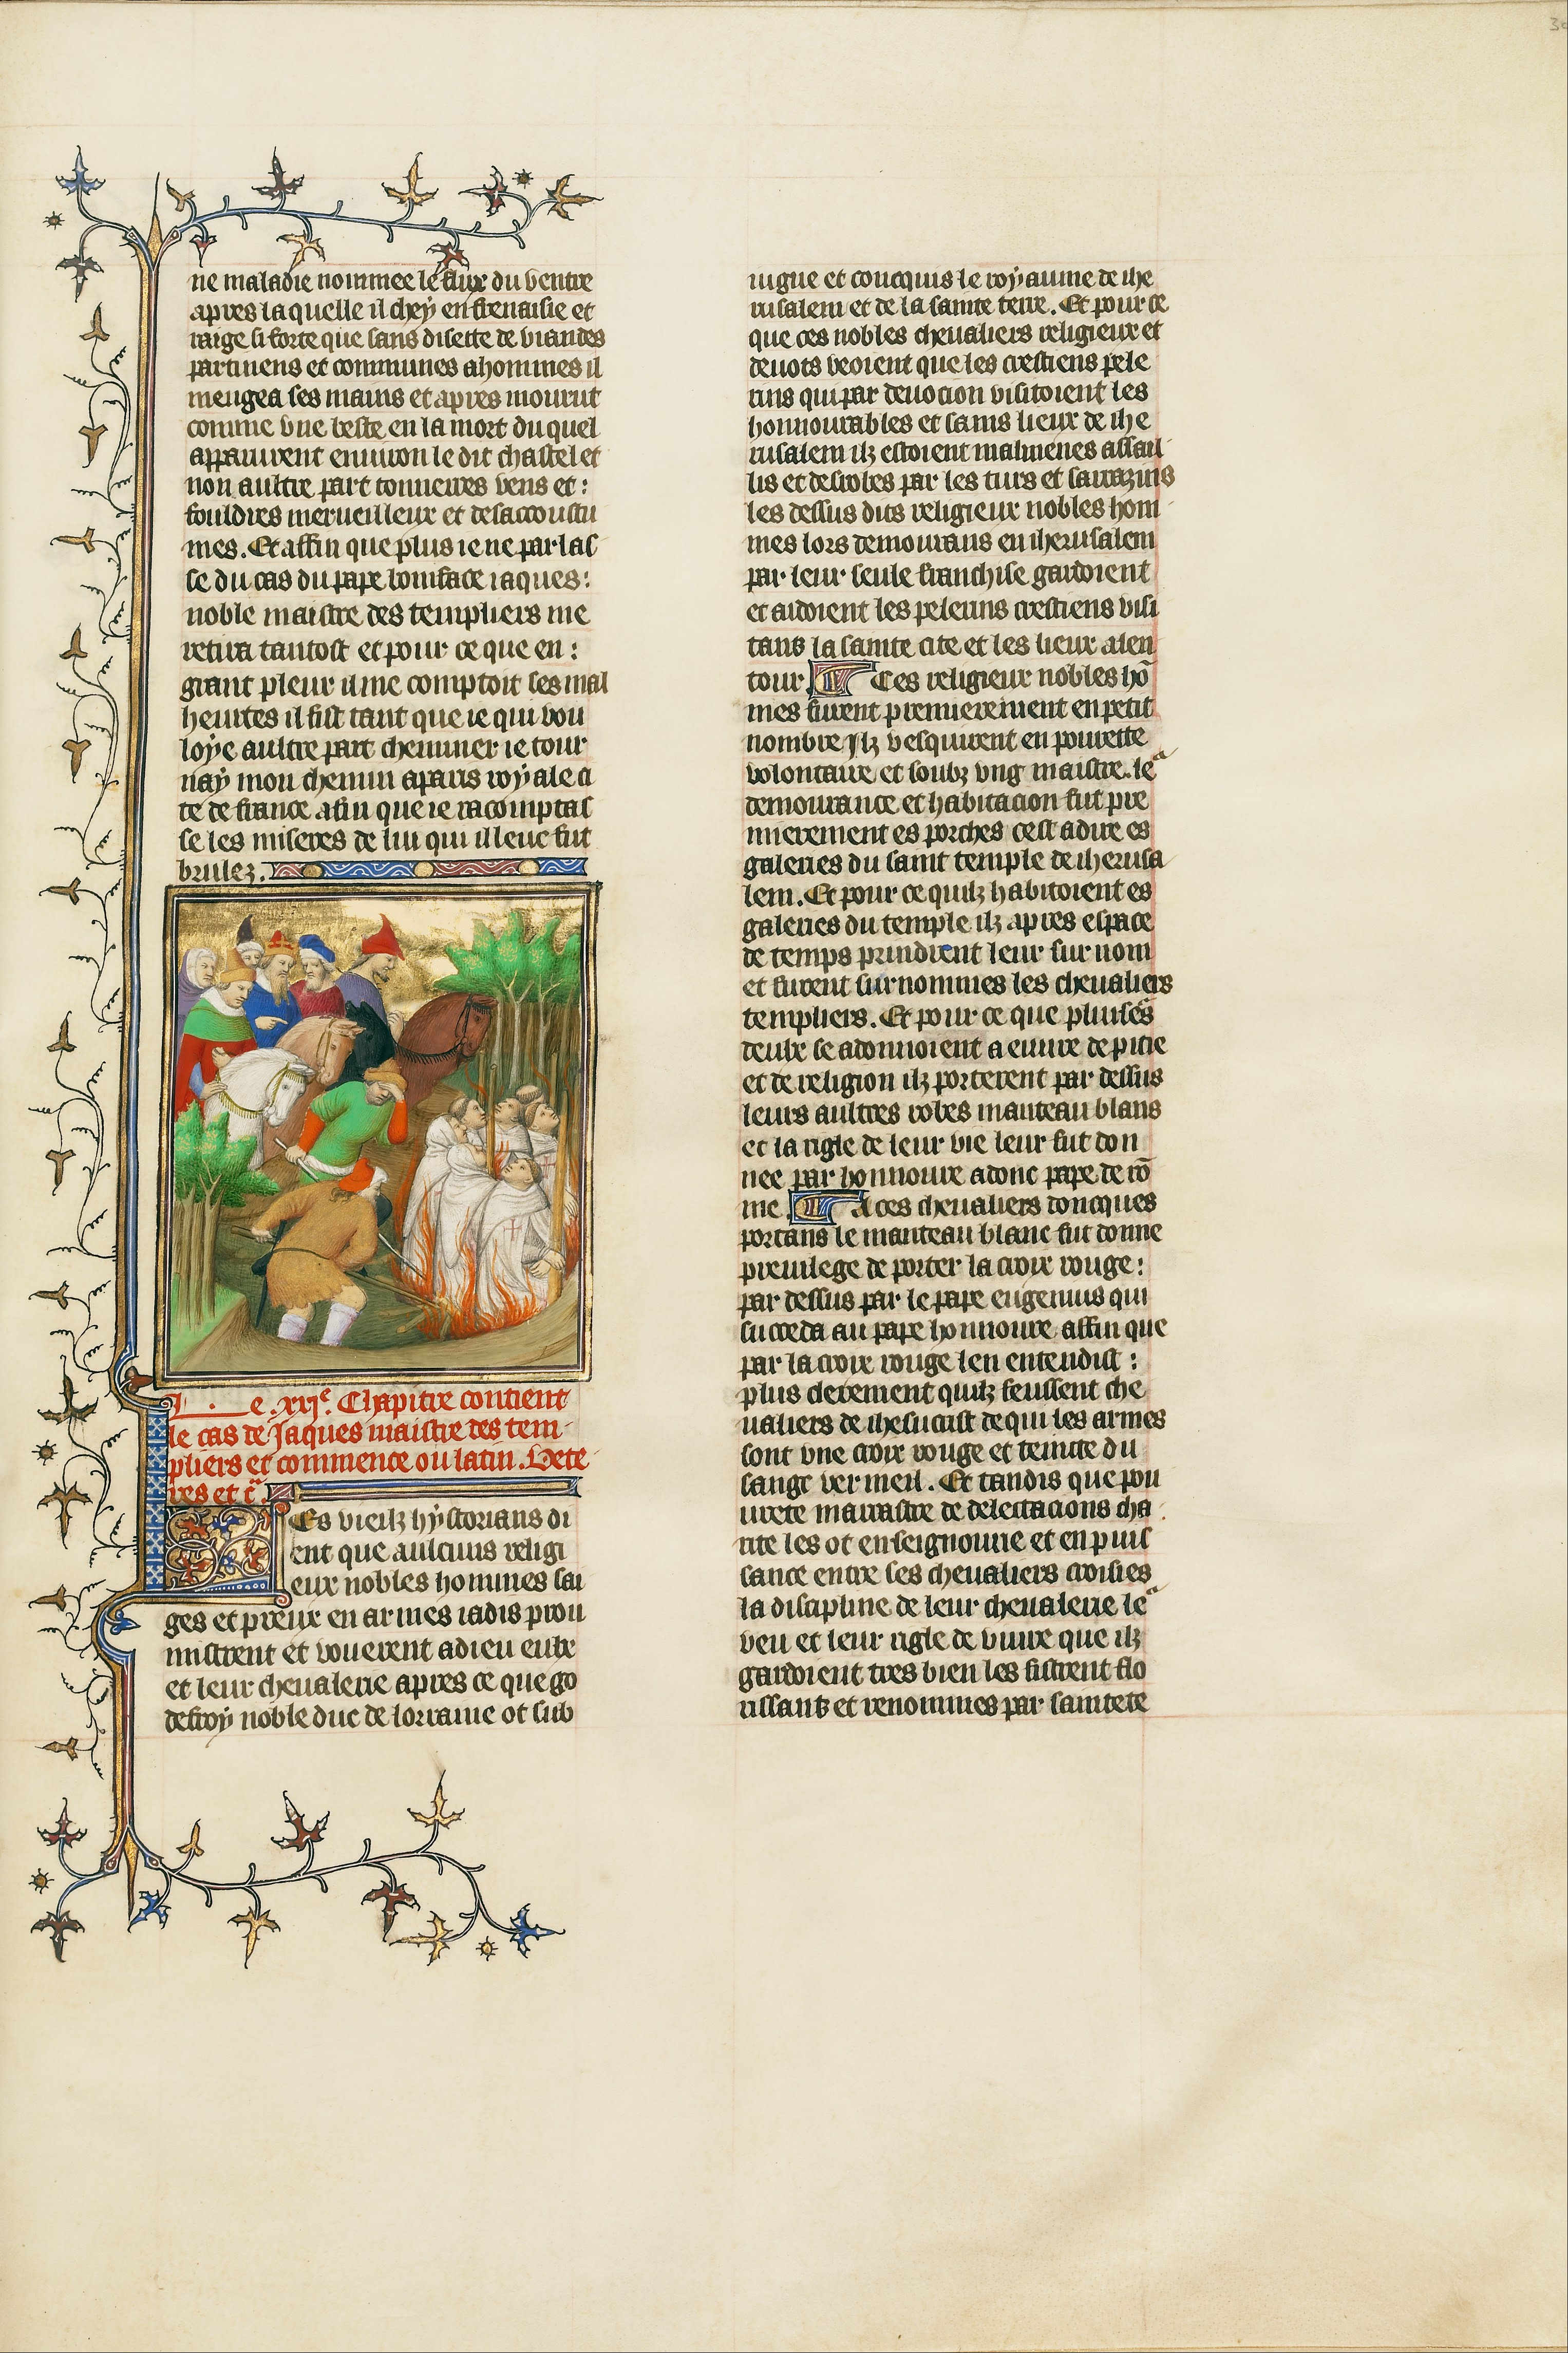 ne maladie nommee le flux du ventre
apres laquelle il chey en frenaisie et
raige si forte que sans disette de viandes
partinens et communes a hommes il
mengea ses mains et apres mourut
comme vne beste en la mort du quel
apparurent enuiron le dit chastel et
non aultre part tonneirres vens et :
fouldres merueilleux et desaccoustu
mes. Et affin que plus ie ne parlas
se du cas du pape boniface iaques :
noble maistre des templiers me
retira tantost et pour ce que en :
grant pleur il me comptoit ses mal
heurtes il fist tant que ie qui vou
loye aultre part cheminer ie tour
nay mon chemin a paris royale ci
te de france afin que ie racomptas
se les miseres de lui qui illeuc fut
brulez.
Le .xxjᵉ. Chapitre contient
le cas de Jaques maistre des tem
pliers et commence ou latin. Vete
res et c̃.
Les vieilz hystorians di
ent que aulcuns religi
eux nobles hommes sai
ges et preux en armes iadis prou
mistrent et vouerent a dieu eulx
et leur cheualerie apres ce que go
deffroy noble duc de lorraine ot sub
iugue et concquis le royaume de ihe
rusalem et de la sainte terre. Et pour ce
que ces nobles cheualiers religieux et
deuots veoient que les crestiens pele
rins qui par deuocion visitoient les
honnourables et sains lieux de ihe
rusalem ilz estoient malmenes assail
lis et desrobes par les turs et sarrazins
les dessus dits religieux nobles hom
mes lors demourans en iherusalem
par leur seule franchise gardoient
et aidoient les pelerins crestiens visi
tans la sainte cite et les lieux alen
tour Ces religieux nobles hō
mes furent premierement en petit
nombre Ilz vesquirent en pourete
volontaire et soubz vng maistre. le
demourance et habitacion fut pre
mierement es porches cest a dire es
galeries du saint temple de iherusa
lem. Et pour ce quilz habitoient es
galeries du temple ilz apres espace
de temps prindrent leur surnom
et furent surnommes les cheualiers
templiers. Et pour ce que pluises
deulx se adonnoient a euure de pitie
et de religion ilz porterent par dessus
leurs aultres robes manteau blans
et la rigle de leur vie leur fut don
nee par honnoure adonc pape de rō
me A ces cheualiers doncques
portans le manteau blanc fut donne
preuilege de porter la croix rouge :
par dessus par le pape eugenius qui
succeda au pape honnoure affin que
par la croix rouge len entendist :
plus clerement quilz feussent che
ualiers de ihesucrist de qui les armes
sont vne croix rouge et teincte du
sanc vermeil. Et tandis que pou
urete marrastre de delectacions cha
rite les ot en seignourie et en puis
sance entre ses cheualiers croisies
la discipline de leur cheualerie le
veu et leur rigle de viure que ilz
gardoient tres bien les fistrent flo
rissants et renommes par saintete